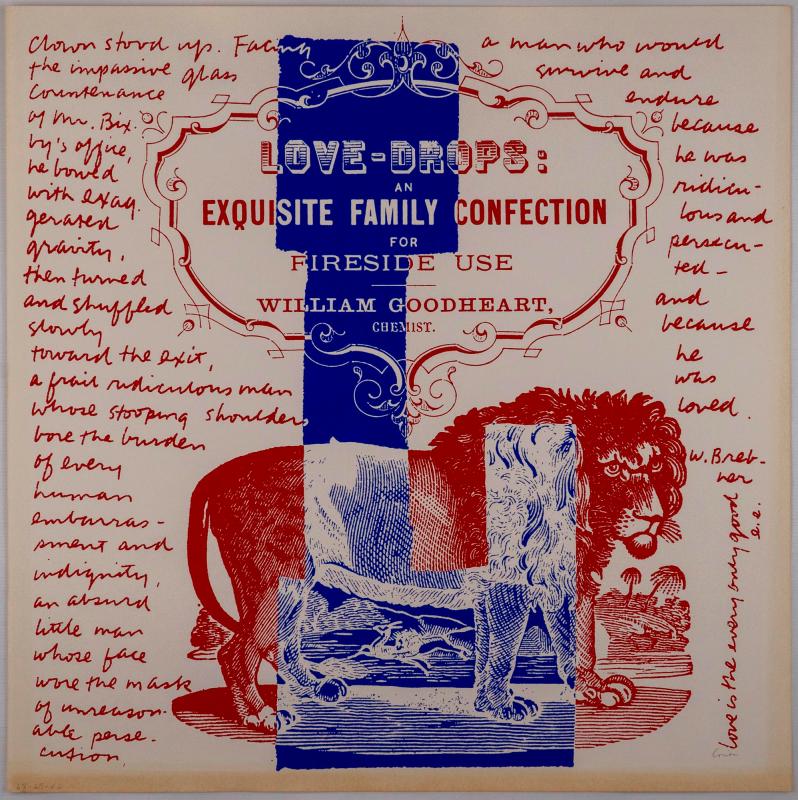 Clown stood up. Facing
the impassive glass
countenance
of Mr. Bix.
by's office,
he bowed
with exag.
gerated
gravity,
then turned
and shuffled
slowly
toward the exit,
a frail ridiculous man
whose stooping shoulders
bore the burden
of every
human
embarras-
sment and
indignity,
an absurd
little man
whose face
wore the mask
of unreason-
able perse-
cution,
a man who would
survive and
endure
because
he was
ridicu-
lous and
persecu-
ted -
and
because
he
was
loved.
W. Breb-
ner
LOVE-DROPS:
AN
EXQUISITE FAMILY CONFECTION
FOR
FIRESIDE USE
WILLIAM GOODHEART,
CHEMIST.
love is the every only good
e.e.